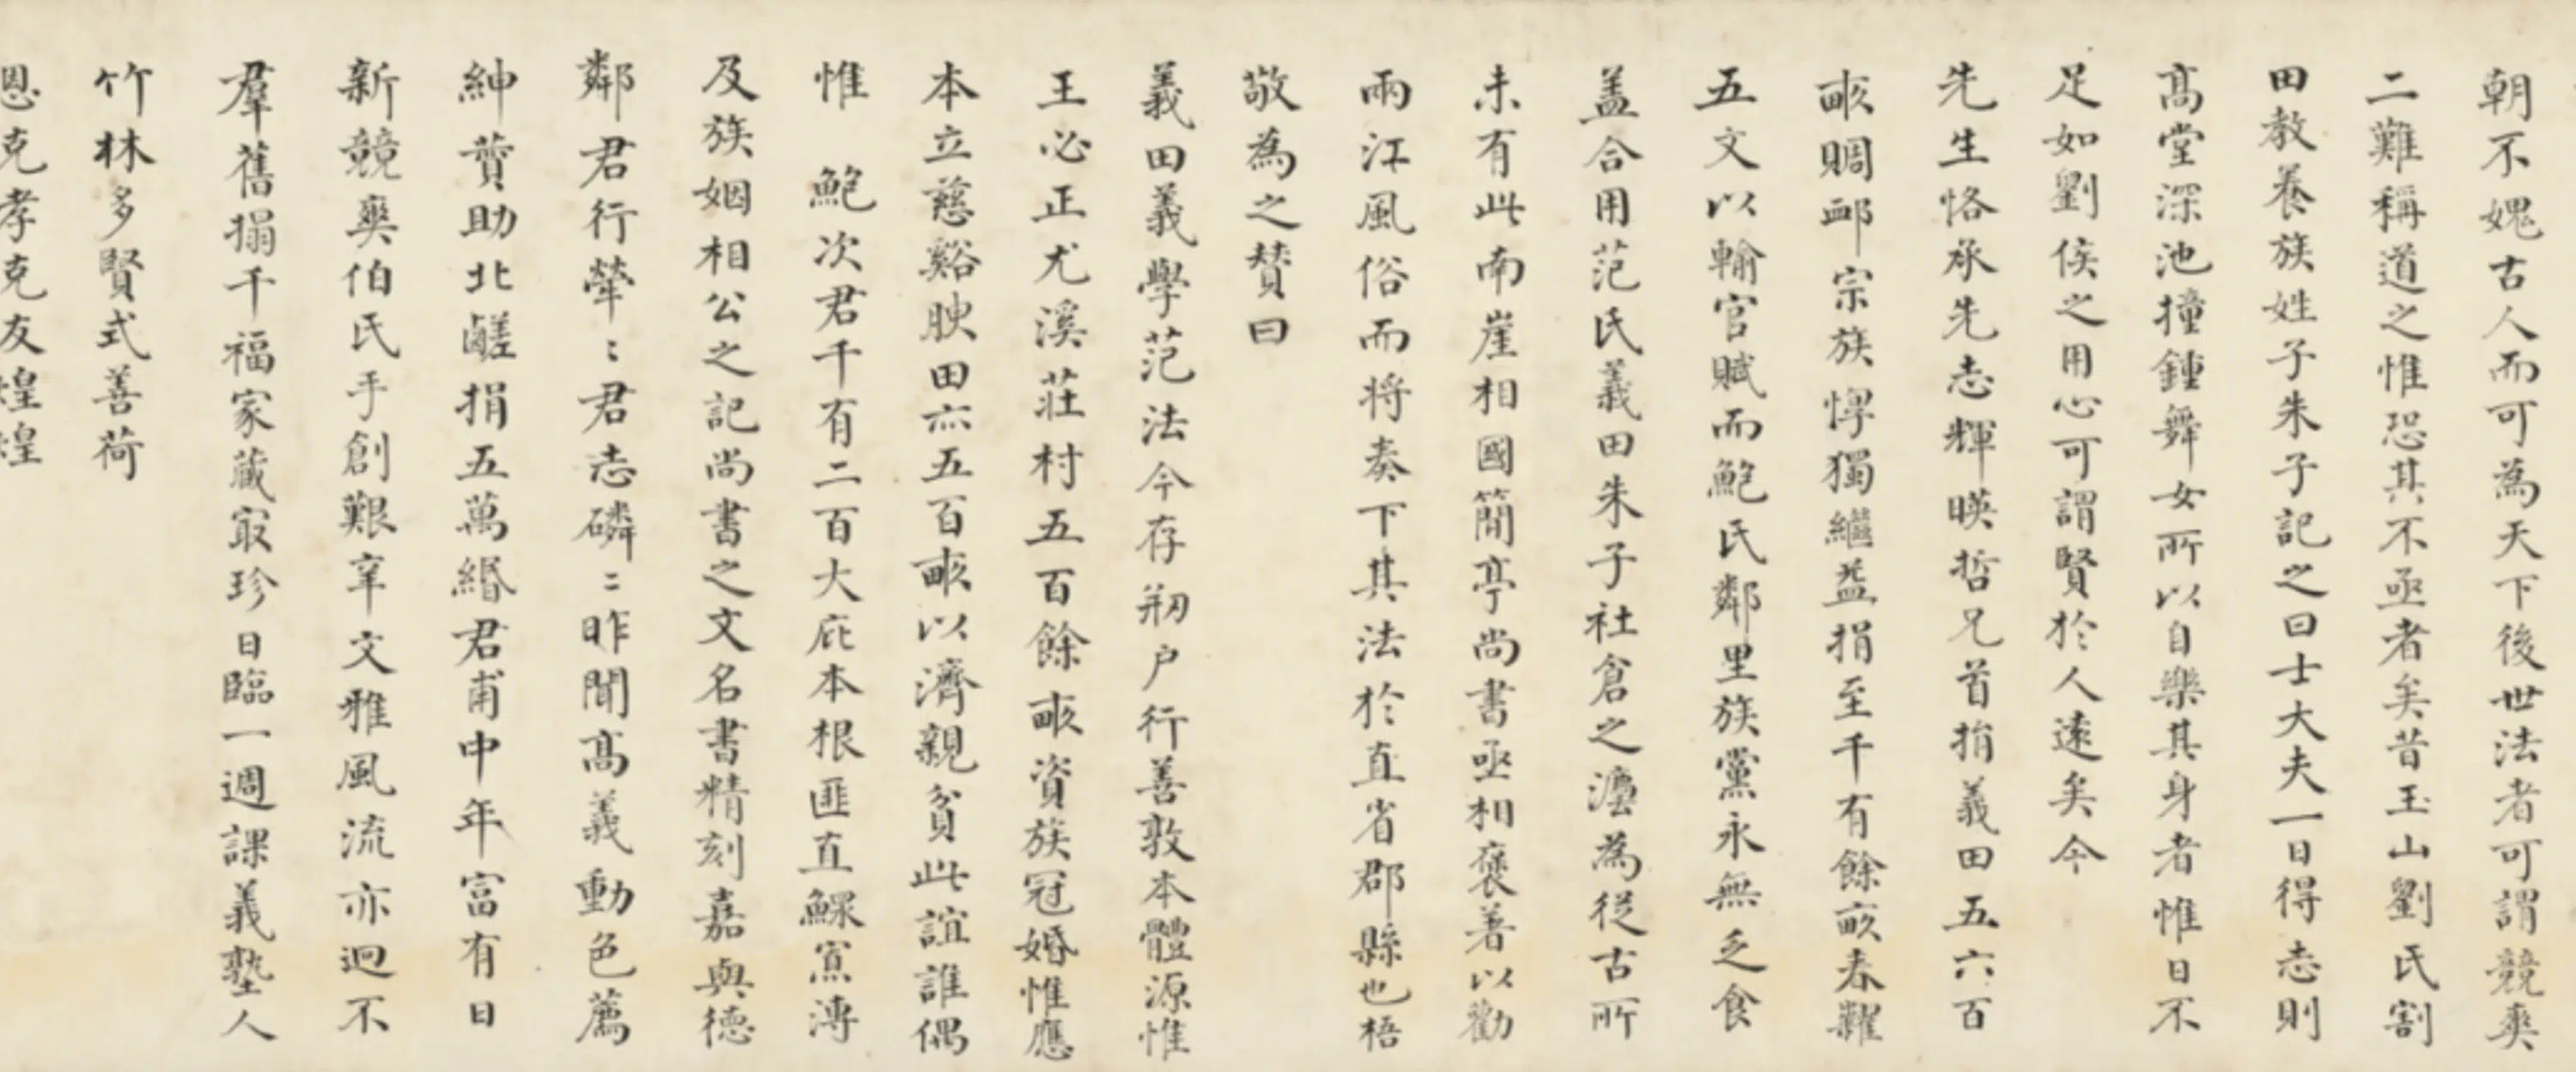 朝不媿古人而可為天下後世法者可謂競爽
二難稱道之惟恐其不亟者矣昔玉山劉氏割
田教養族姓子朱子記之曰士大夫一日得志則
高堂深池撞鍾舞女所以自樂其身者惟日不
足如劉侯之用心可謂賢於人遠矣今
先生恪承先志輝暎哲兄首捐義田五六百
畝賙䘏宗族惸獨繼益捐至千有餘畝春糶
五文以輸官賦而鮑氏鄰里族黨永無乏食
盖合用范氏義田朱子社倉之灋為從古所
未有此南崖相國簡亭尚書亟相褒著以勸
兩江風俗而将奏下其法於直省郡縣也梧
敬為之贊曰
義田義學范法今存剏户行善敦本體源惟
王必正尤溪莊村五百餘畝資族冠婚惟應
本立慈谿腴田亦五百畝以濟親貧此誼誰偶
惟 鮑次君千有二百大庇本根匪直鰥寡溥
及族姻相公之記尚書之文名書精刻嘉與德
鄰君行犖〻君志磷〻昨聞高義動色薦
紳贊助北鹺捐五萬緡君甫中年富有日
新競爽伯氏手創艱辛文雅風流亦迥不
羣舊搨千福家藏冣珍日臨一週課義塾人
竹林多賢式善荷
恩克孝克友煌煌